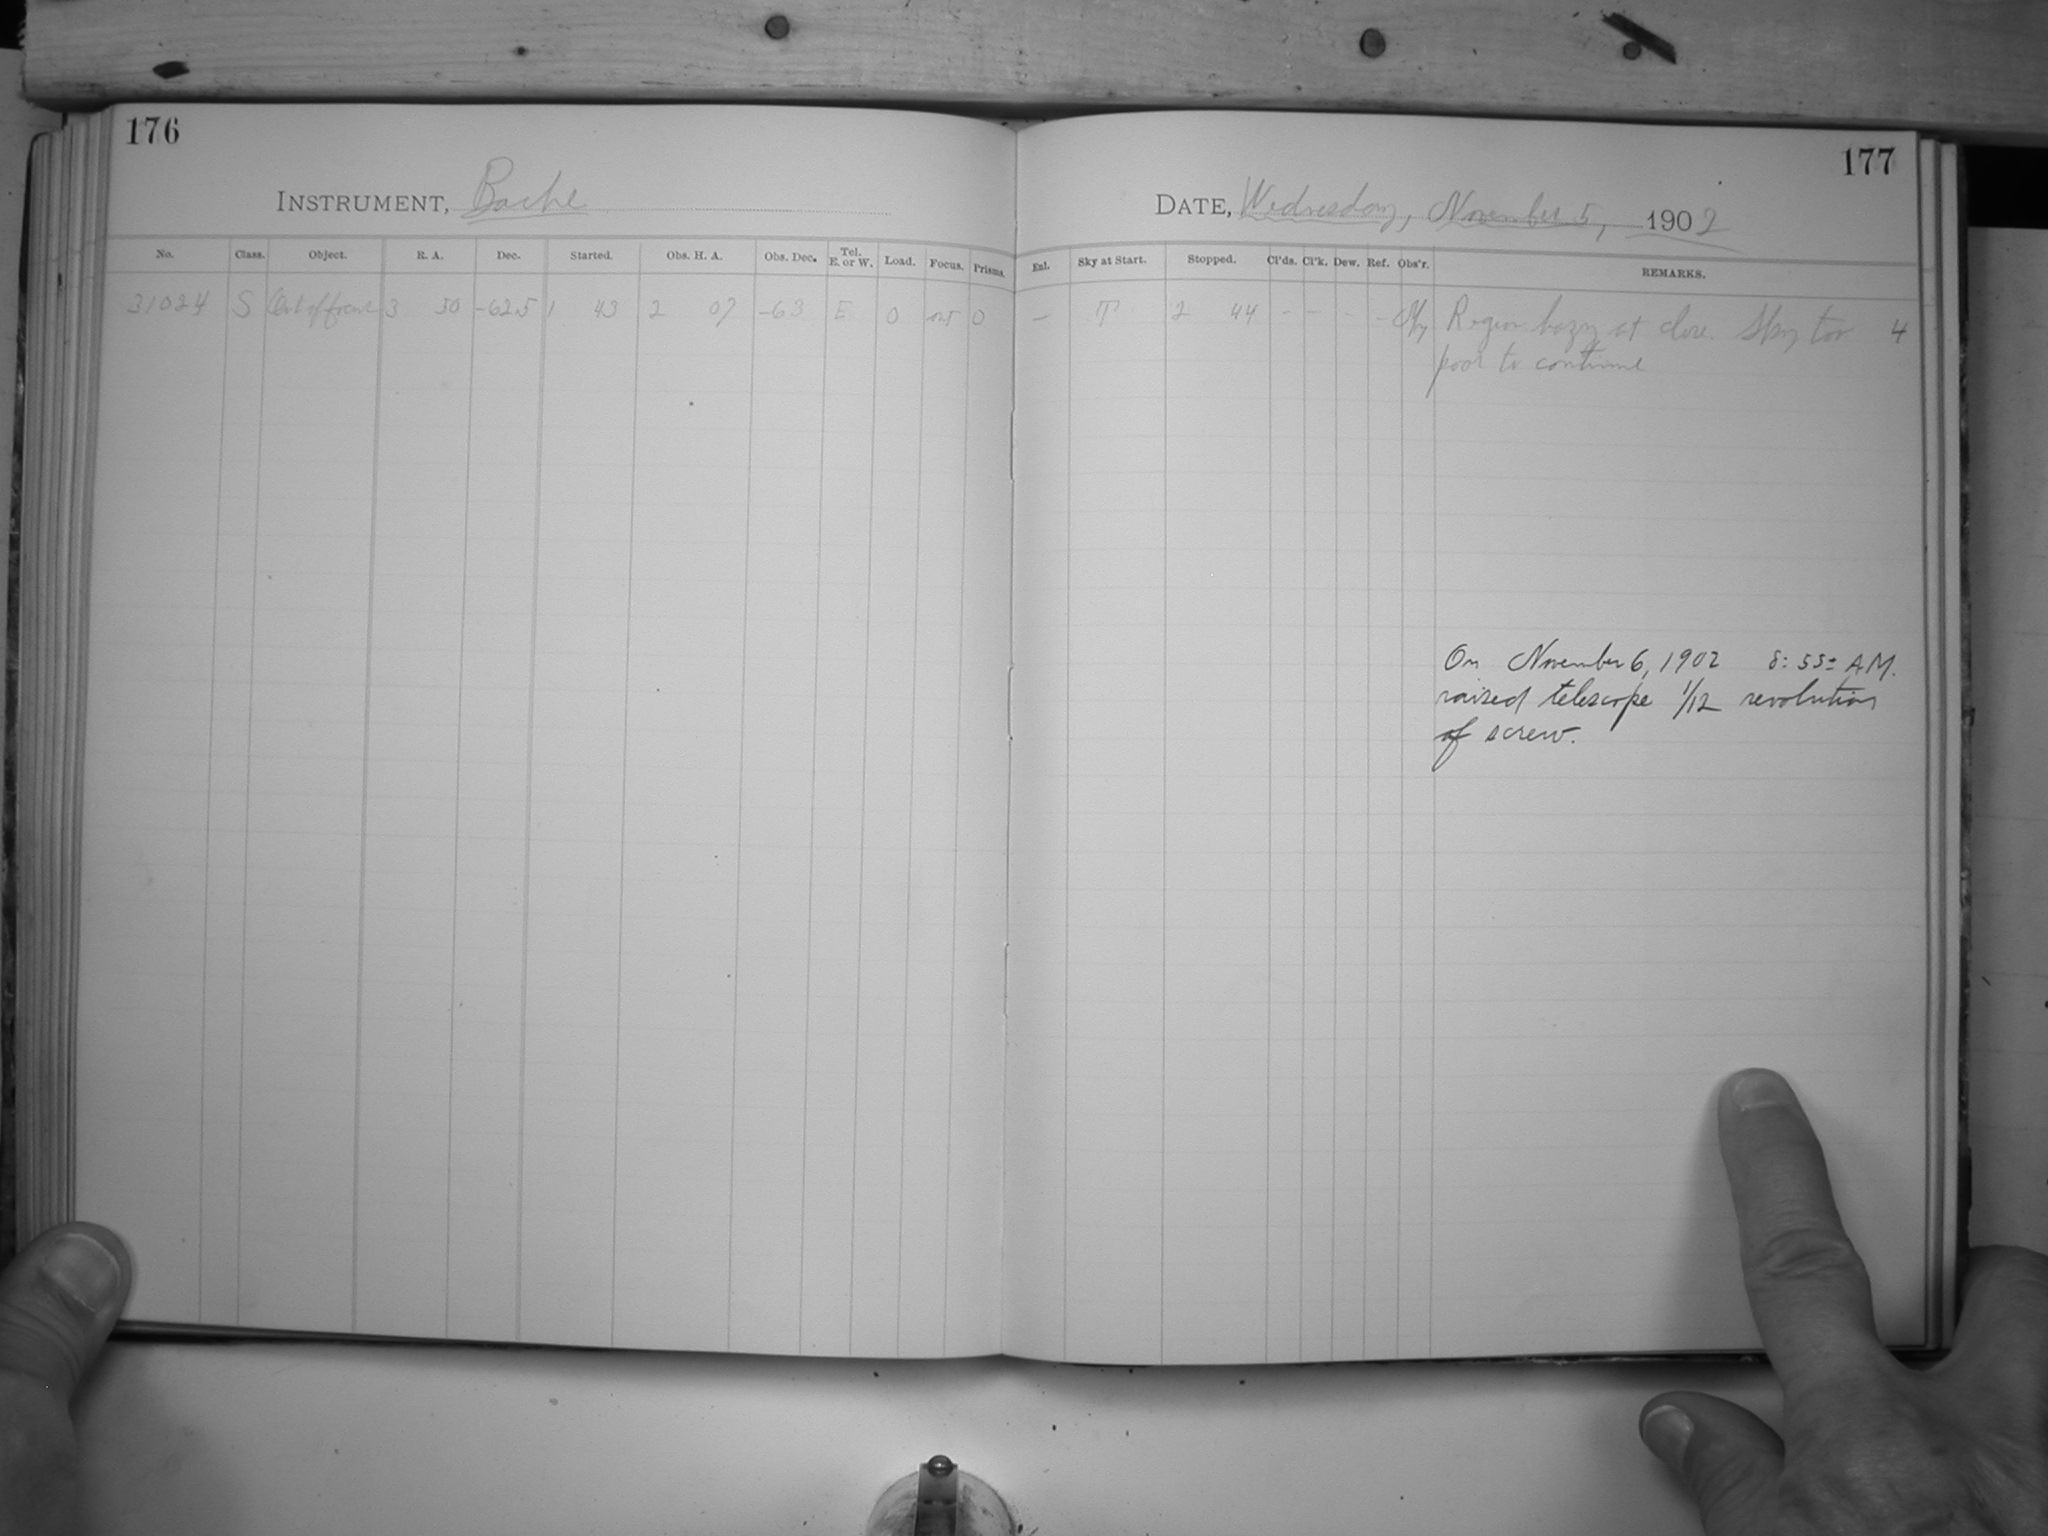 176
INSTRUMENT, Bache
No. Class. Object. R. A. Dec. Started. Obs. H. A. Obs. Dec. Tel. E. or W. Load. Focus. Prisms.
31024 S Out of focus 3 30 -62.5 1 43 2 07 -63 E 0 out 0
177
DATE, Wednesday, November 5, 1902
Enl. Sky at Start. Stopped. Cl'ds. Cl'k. Dew. Ref. Obs'r. REMARKS.
- T 2 44 - - - - Region hazy at close. Sky too 4
poor to continue
On November 6, 1902 8:55± A.M.
raised telescope 1/12 revolution
of screw.